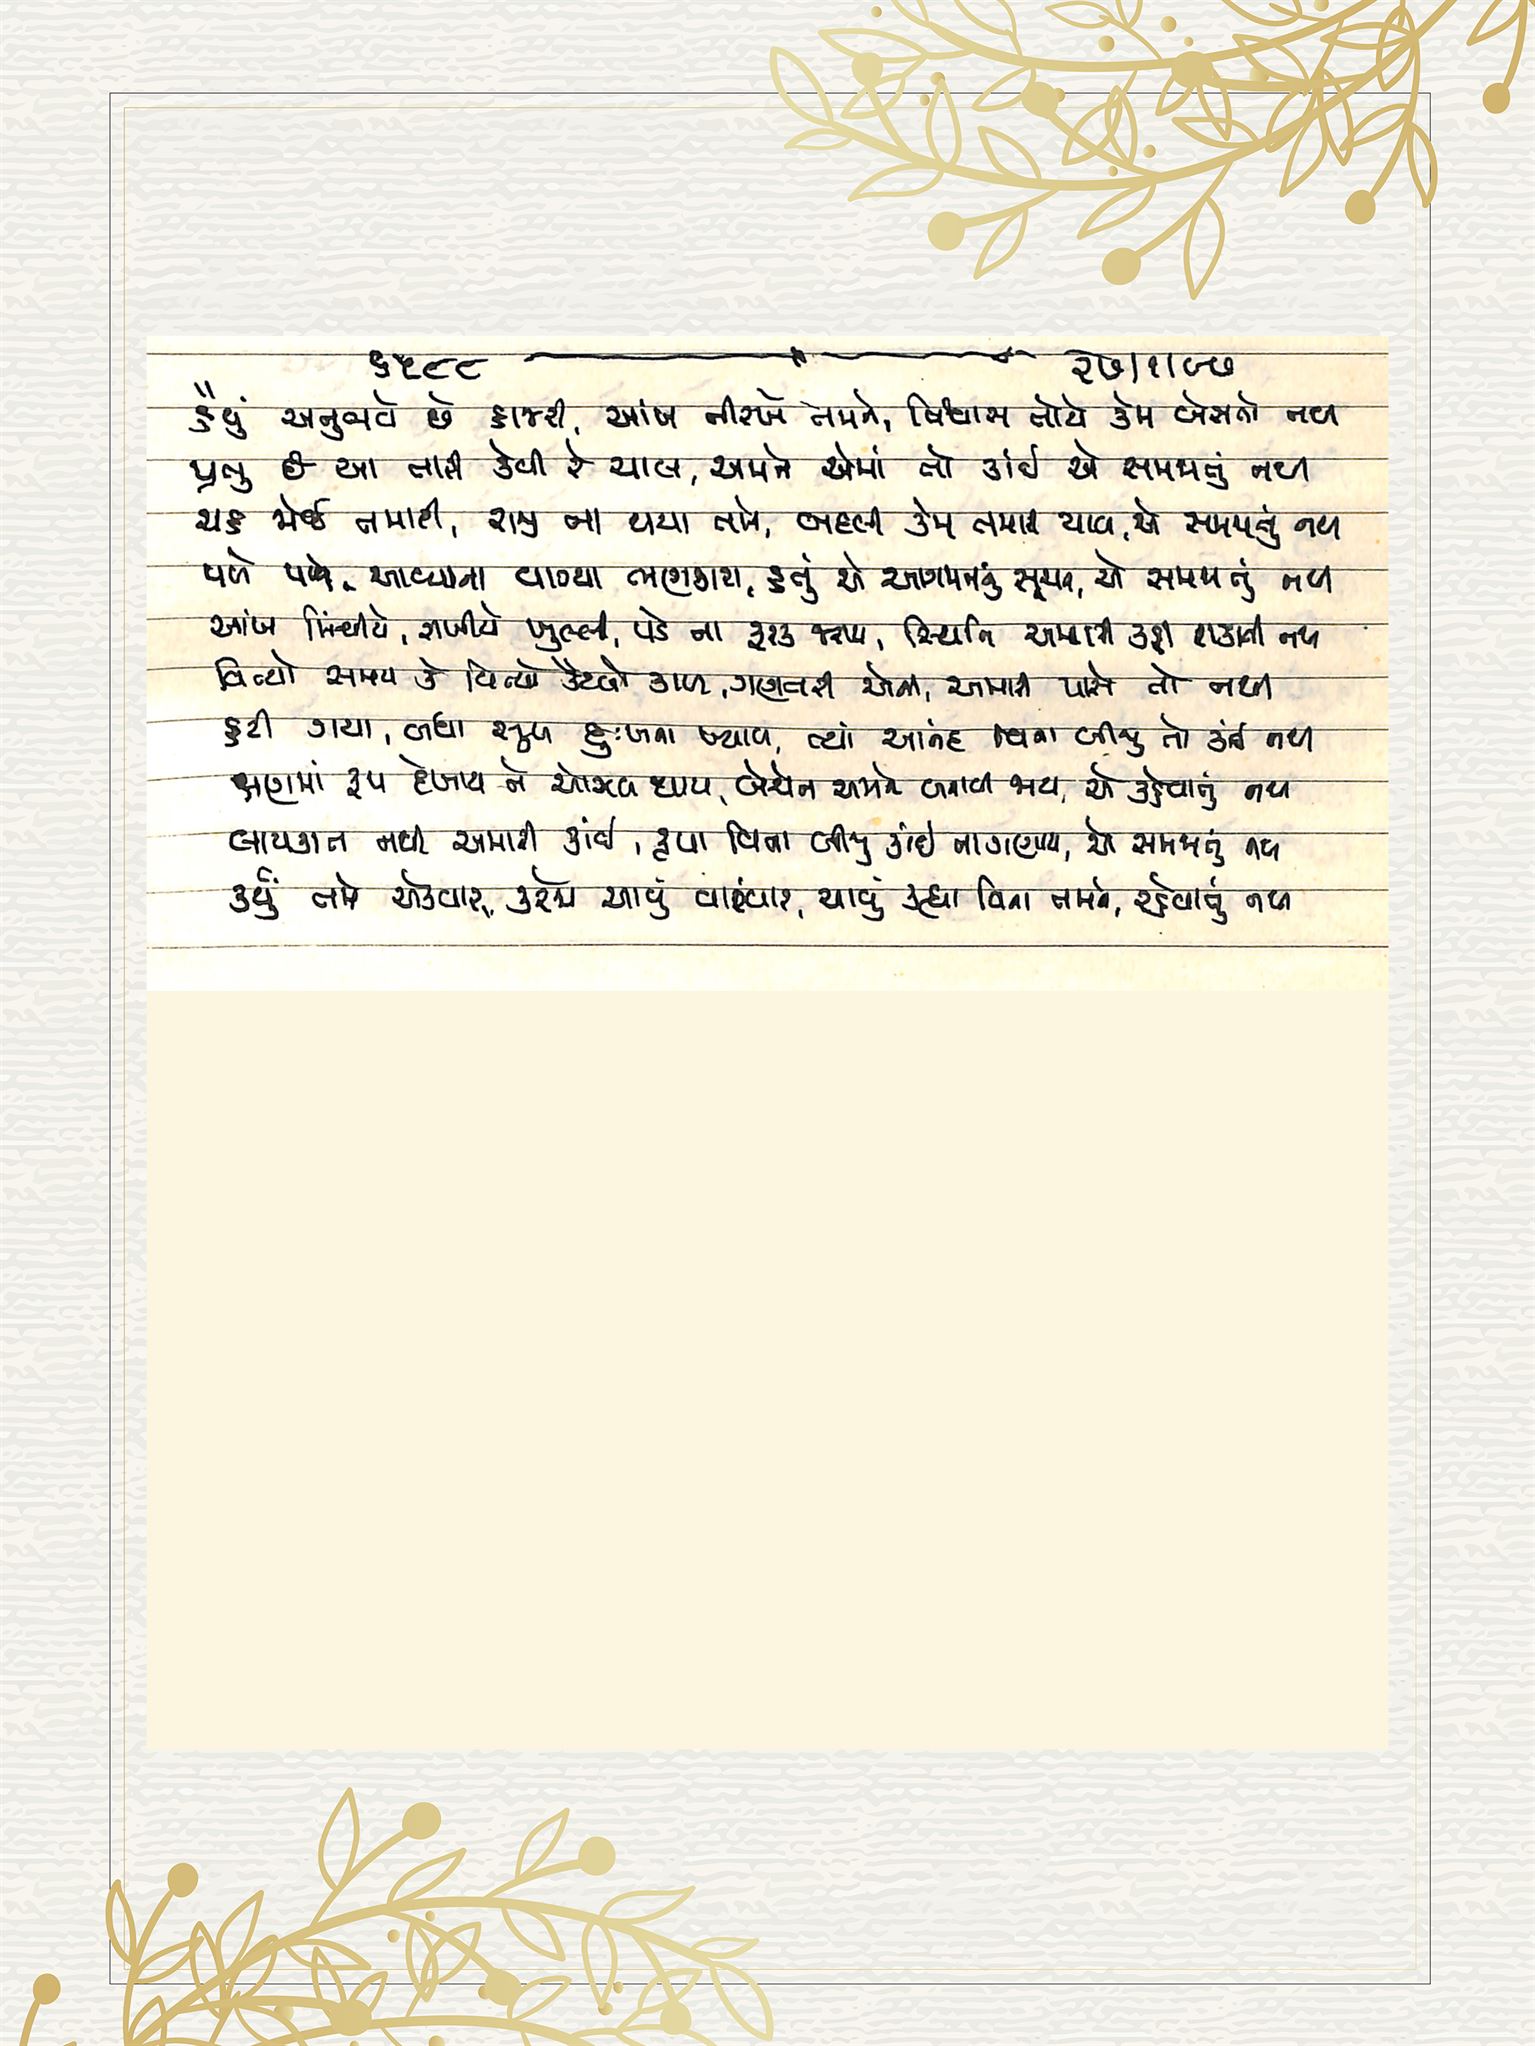 ૬૫૯૯ ૨૭/૧/૯૭
હૈયું અનુભવે છે હાજરી, આંખ નીરખે તમને, વિશ્વાસ તોયે કેમ બેસતો નથી
પ્રભુ છે આ તારી કેવી રે ચાલ, અમને એમાં તો કાંઈ એ સમજાતું નથી
ચહ ભોઈ તમારી, રાજી ના થયા તમે, બદલી કેમ તમારી ચાલ, એ સમજાતું નથી
પળે પળે, આવવાના વાગ્યા ભણકારા, હતું એ આગમનનું સૂચન, એ સમજાતું નથી
આંખ મિંચીયે, રાખીયે ખુલ્લી, પડે ના ફરક જરાય, સ્થિતિ અમારી કહી શકાતી નથી
વિત્યો સમય કે વિત્યો કેટલો કાળ, ગણતરી એની, અમારી પાસે તો નથી
હટી ગયા, બધા સુખ દુઃખના ખ્યાલ, ત્યાં આનંદ વિના બીજું તો કાંઈ નથી
ક્ષણમાં રૂપ દેખાય ને ઓઝલ થાય, બેચેન અમને બનાવી જાય, એ કહેવાનું નથી
લાયકાત નથી અમારી કાંઈ, કૃપા વિના બીજું કાંઈ ના ગણાય, એ સમજાતું નથી
કર્યું તમે એકવાર, કરશો આવું વારંવાર, આવું કહ્યા વિના તમને, રહેવાતું નથી